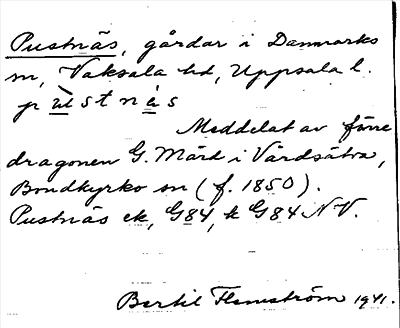 Pustnäs, gårdar i Danmarks
sn, Vaksala hd, Uppsala l.
pùstnäs
Meddelat av förre
dragonen G. Mård i Vårdsätra,
Bondkyrko sn (f. 1850).
Pustnäs ek, G84, k G84 NV.
Bertil Flemström 1941.